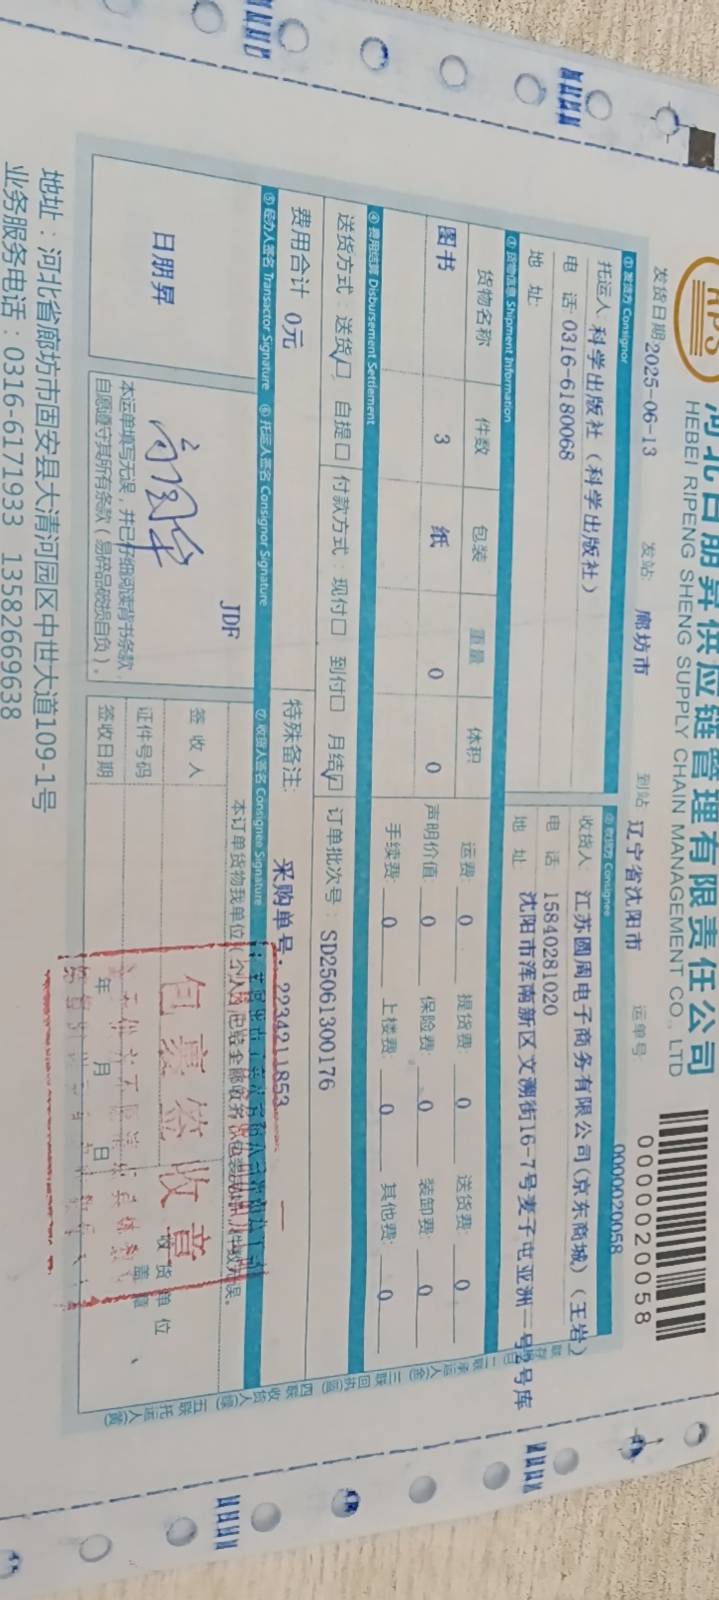 RPS
河北日朋昇供应链管理有限责任公司
HEBEI RIPENG SHENG SUPPLY CHAIN MANAGEMENT CO., LTD
0000020058
发货日期:2025-06-13 发站: 廊坊市 到站: 辽宁省沈阳市 运单号: 0000020058
① 发货方 Consignor ② 收货方 Consignee
托运人:科学出版社（科学出版社） 收货人: 江苏圆周电子商务有限公司(京东商城)（王岩）
电 话:0316-6180068 电 话: 15840281020
地 址: 地 址: 沈阳市浑南新区文溯街16-7号麦子屯亚洲一号2号库
③ 货物信息 Shipment Information
货物名称 件数 包装 重量 体积 运费: 0 提货费: 0 送货费: 0
图书 3 纸 0 0 声明价值: 0 保险费: 0 装卸费: 0
手续费: 0 上楼费: 0 其他费: 0
④ 费用结算 Disbursement Settlement
送货方式: 送货☑ 自提□ 付款方式: 现付□ 到付□ 月结☑ 订单批次号: SD25061300176
费用合计 0元 特殊备注: 采购单号: 2234211853 一
⑤ 经办人签名 Transactor Signature ⑥ 托运人签名 Consignor Signature ⑦ 收货人签名 Consignee Signature
日朋昇
JDF
本运单填写无误，并已仔细阅读背书条款
自愿遵守其所有条款（易碎品破损自负）。
本订单货物我单位（个人）已验全部收务
签 收 人
证件号码
签收日期 年 月 日
收货单位
盖章
包裹签收章
二联承运人
三联回执
四联收货人
五联托运人
地址：河北省廊坊市固安县大清河园区中世大道109-1号
业务服务电话：0316-6171933 13582669638